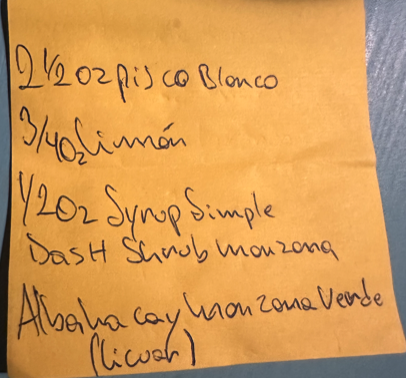 2 1/2 oz pisco Blanco
3/4 oz Limón
1/2 oz Syrup Simple
DasH Shrub manzana
Albahaca y manzana Verde
(licuar)